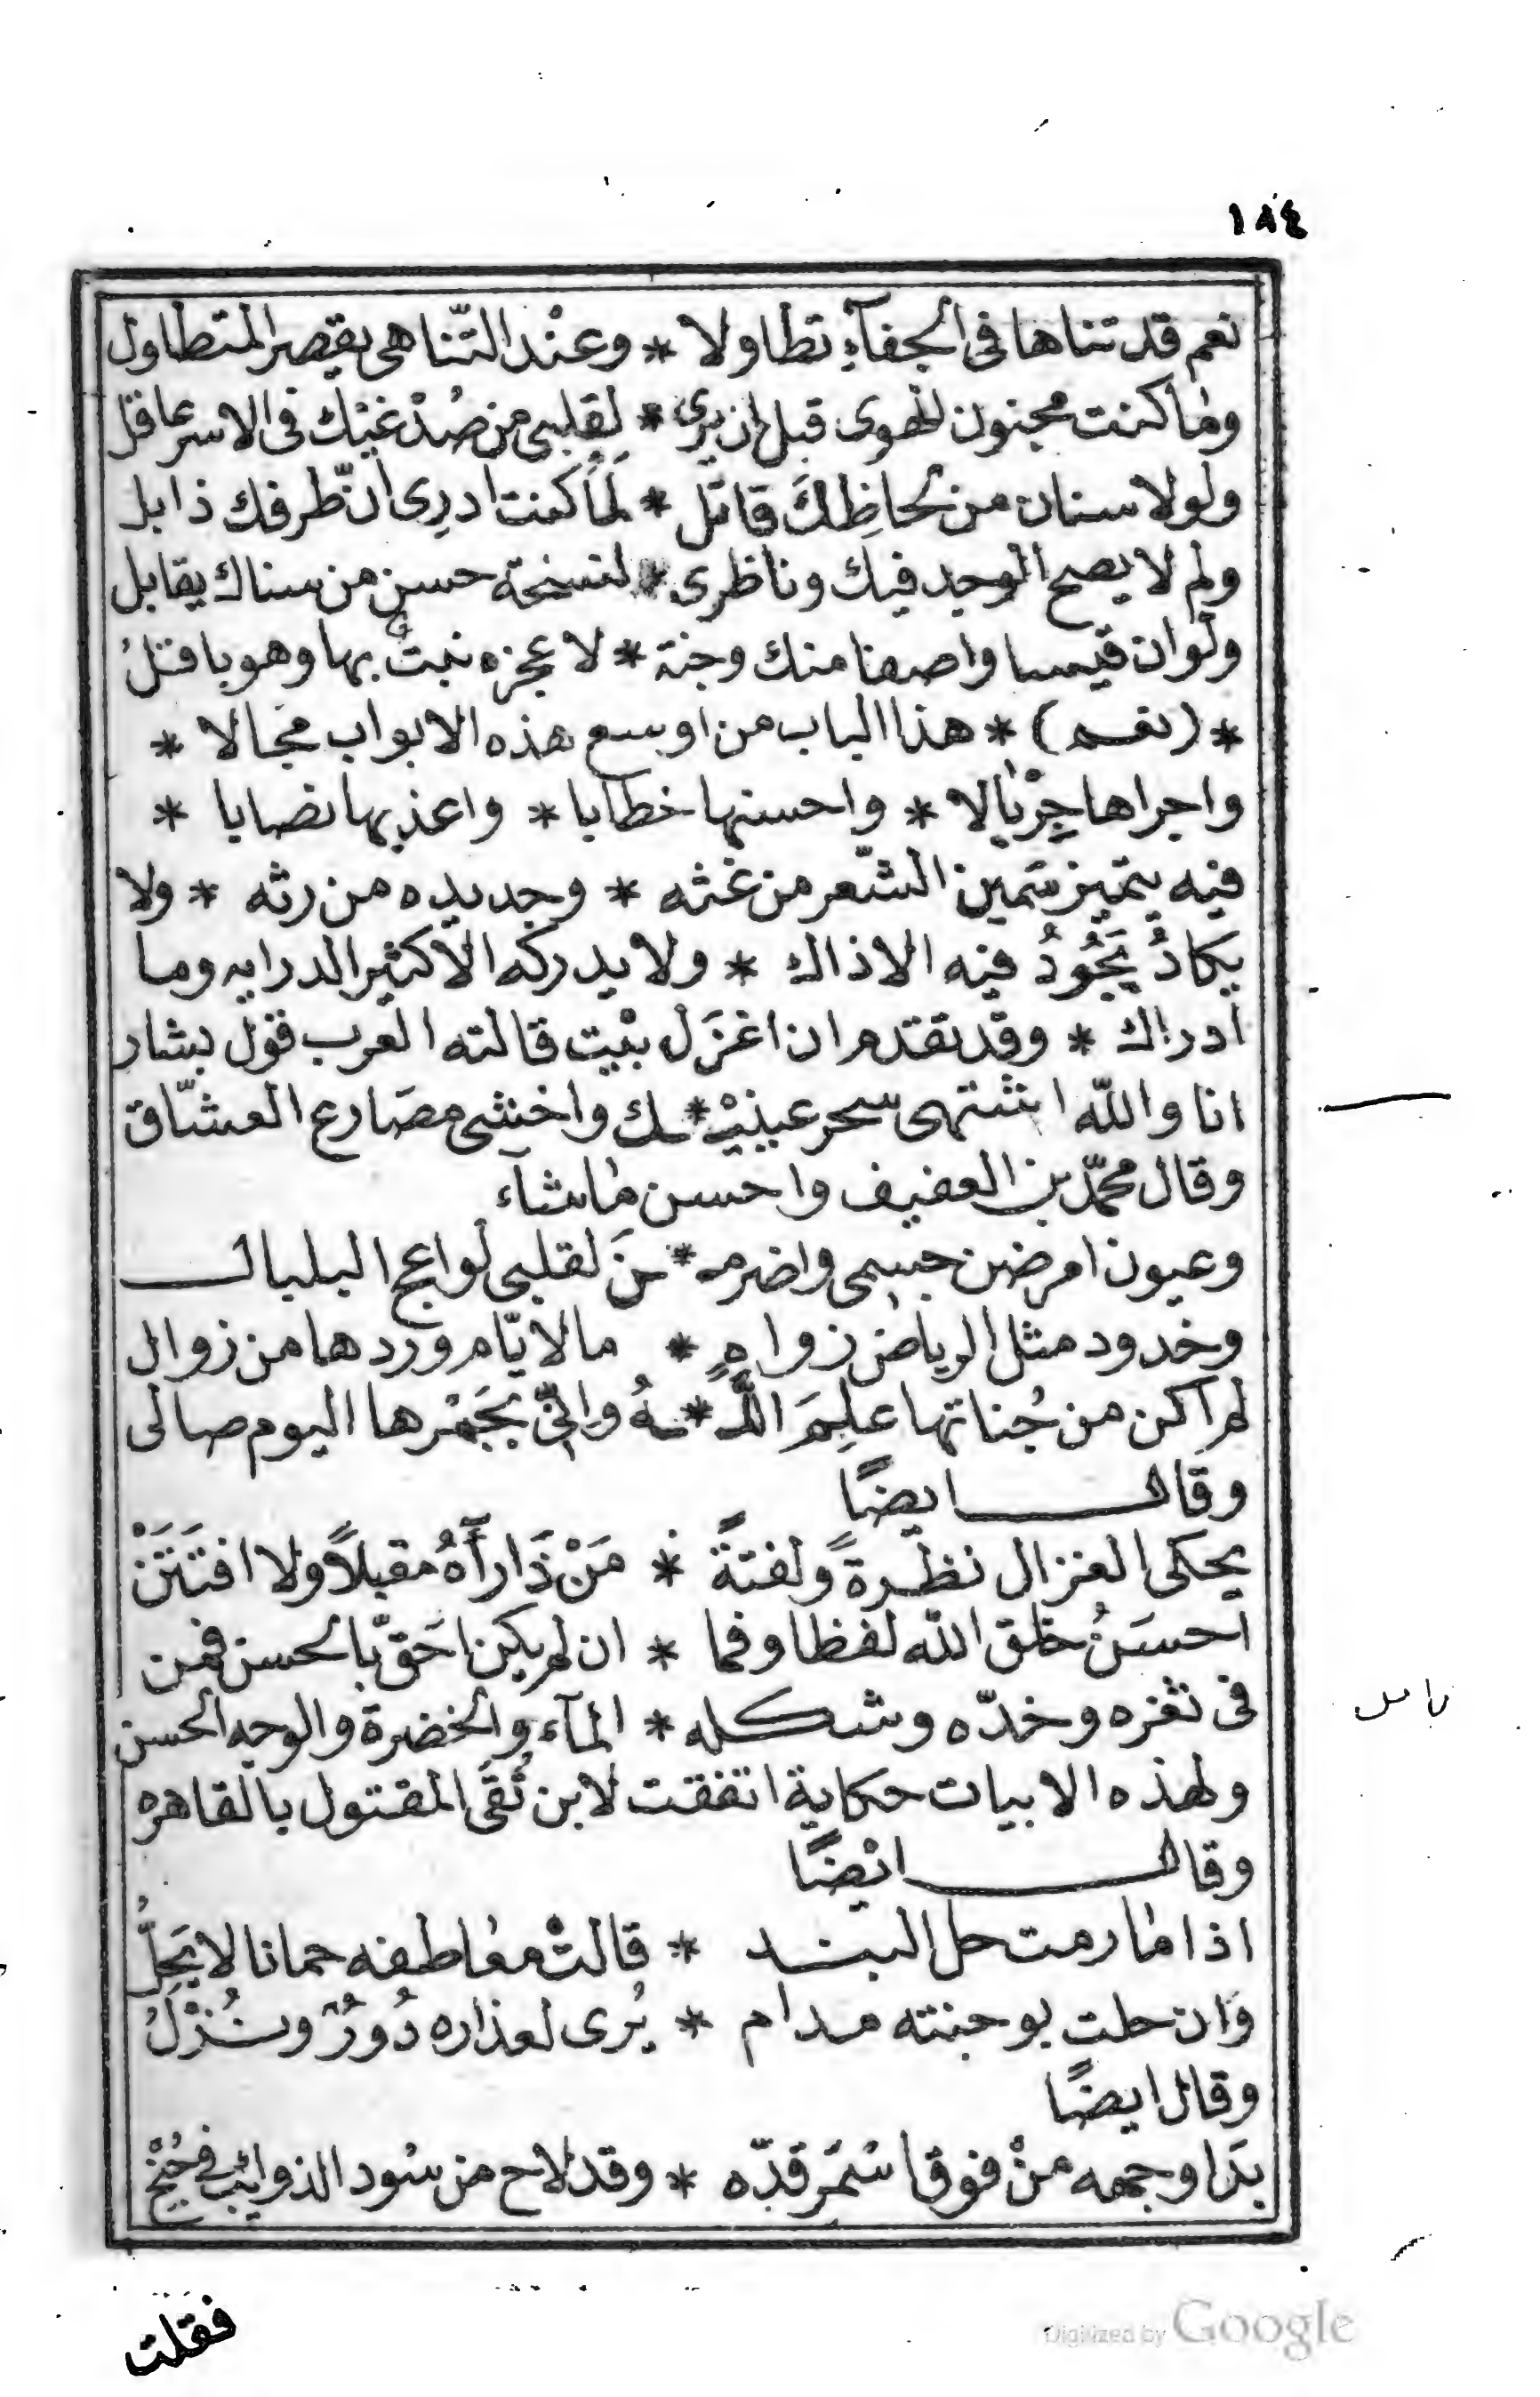 ١٨٤
نعم قد تناها فى الجفآءِ تطاولا * وعنْد التّناهى يقصر المتطاول
وما كنت مجنون الهوى قبل ان يرى * لِقلبى من صُدْغيْك فى الاسر عاقل
ولولا سنان من لحاظِكَ قاتل * لماَ كنت ادرِى انّ طرفك ذابل
ولم لا يصح الوجد فيك وناظرى * لنسخة حسن من سناك يقابل
ولو ان قيسا واصفا منك وجنة * لاعجزه نبتٌ بها وهو باقلُ
* (نعم) * هذا الباب من اوسع هذه الابواب مجالا *
واجراها جِرْيالا * واحسنها خطابا * واعذبها نصابا *
فيه يتميز سَمين الشّعر من غثه * وجديده من رثه * ولا
يكادُ يَجُودُ فيه الا ذاك * ولا يدركه الا كثير الدرايه وما
ادراك * وقد تقدم ان اغزَل بيْت قالته العرب قول بشار
انا والله اشتهى سحر عينيْـ * ـك واخشى مصَارع العشّاق
وقال محمّد بن العفيف واحسن ماشآء
وعيون امرضن جسمى واضرمـ * ـنَ لقلبى لواعج البلبال
وخدود مثل الرياض زواهٍ * ما لايّام وردها من زوال
لم اكن من جُناتها عَلِمَ اللّـ * ـهُ وانّى بجَمْرها اليوم صالى
وقال ايضًا
يحكى الغزال نظرةً ولفتةً * مَنْ ذَا رآهُ مقبلاً ولا افتَتَنْ
احسَنُ خلق الله لفظا وفما * ان لم يكن احَقّ بالحسن فمن
فى ثغره وخدّه وشكله * المآء والخضرة والوجه الحسن
ولهذه الابيات حكاية اتفقت لابن ثُقَى المقتول بالقاهره
وقال ايْضًا
اذا ما رمت حل البند * قالتْ معاطفه حمانا لا يَحِلُّ
وان حلت بوجنته مدام * يُرى لعذاره دُورٌ ونُزْلُ
وقال ايضًا
بدَا وجهه منْ فوق اسْمَر قدّه * وقد لاح من سُود الذوائب فى جُنْحِ
فقلت